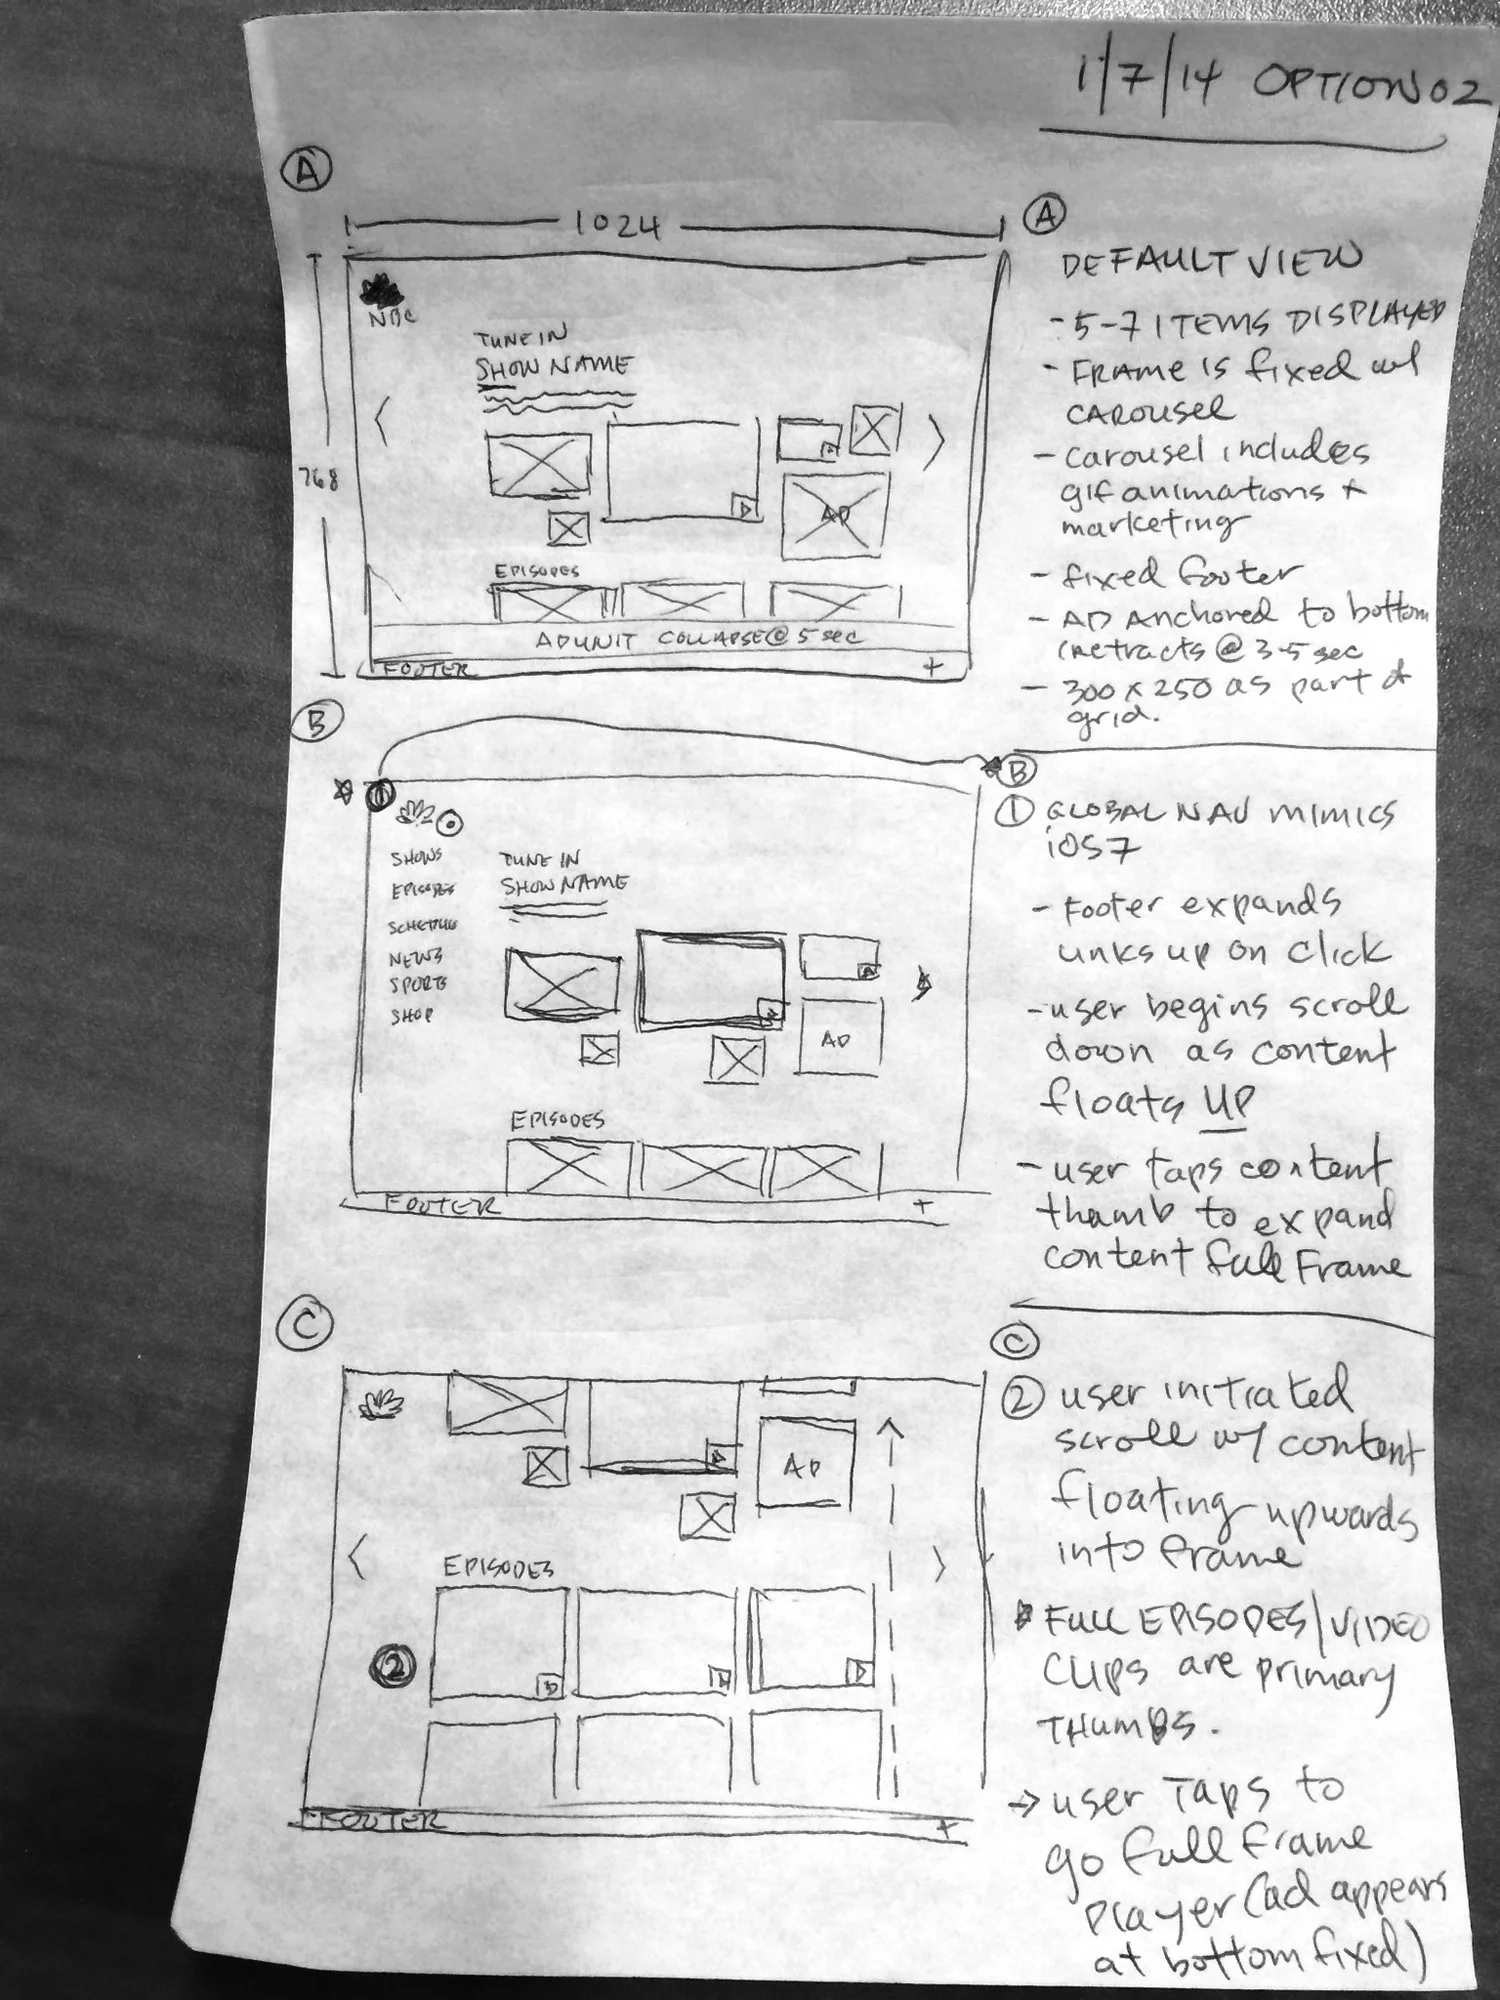 1/7/14 OPTION 02
A
1024
768
NBC
TUNE IN
SHOW NAME
<
>
AD
EPISODES
AD UNIT COLLAPSE @ 5 sec
FOOTER +
A
DEFAULT VIEW
- 5-7 ITEMS DISPLAYED
- FRAME IS fixed w/
CAROUSEL
- Carousel includes
gif animations +
marketing
- fixed footer
- AD Anchored to bottom
(retracts @ 3-5 sec
- 300 x 250 as part of
grid.
B
1
SHOWS
EPISODES
SCHEDULE
NEWS
SPORTS
SHOP
TUNE IN
SHOW NAME
AD
EPISODES
FOOTER +
B
1 GLOBAL NAV MIMICS
iOS7
- Footer expands
links up on click
- user begins scroll
down as content
floats UP
- user taps content
thumb to expand
content full Frame
C
AD
<
>
EPISODES
2
FOOTER +
C
2 user initiated
scroll w/ content
floating upwards
into frame
FULL EPISODES/VIDEO
CLIPS are primary
THUMBS.
→ user TAPS to
go full frame
player (ad appears
at bottom fixed)